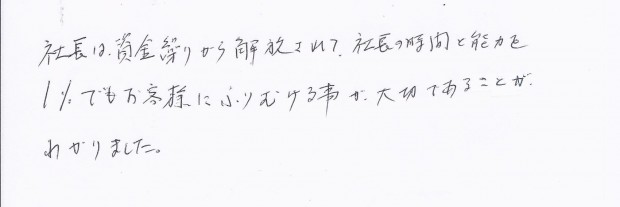 社長は、資金繰りから解放されて、社長の時間と能力を
1%でもお客様にふりむける事が、大切であることが、
わかりました。